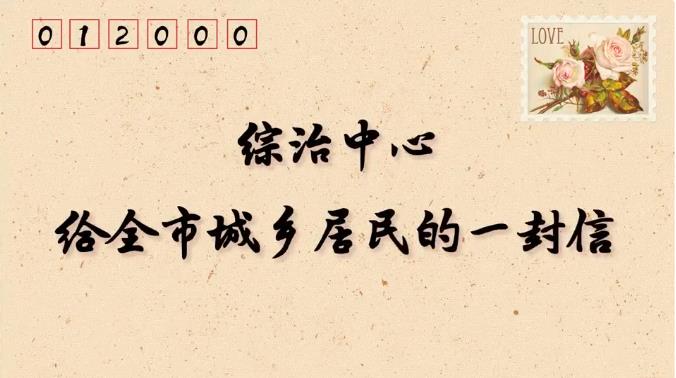 012000
LOVE
综治中心
给全市城乡居民的一封信